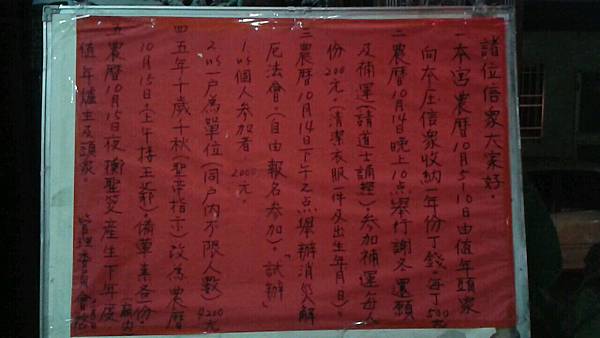 諸位信眾大家好。
一本宮農曆10月5-10日由值年頭家
向本庄信眾收納一年份丁錢。每丁500元
二農曆10月14日晚上10点舉行謝冬還願
及補運(請道士誦經)。參加補運每人
份200元。(清潔衣服一件及出生年月日)。
三農曆10月14日下午2点舉辦消災解
厄法會。(自由報名參加)。「試辦」
1.以個人參加者2000元。
2.以一戶為單位(同戶內不限人數)4200元
四五年十歲千秋(聖示指示)改為農曆
10月15日。上午接玉爺)。備葷素各份。
五農曆10月15日夜擲聖筊產生下年度
值年爐主及頭家。
管理委員會啓